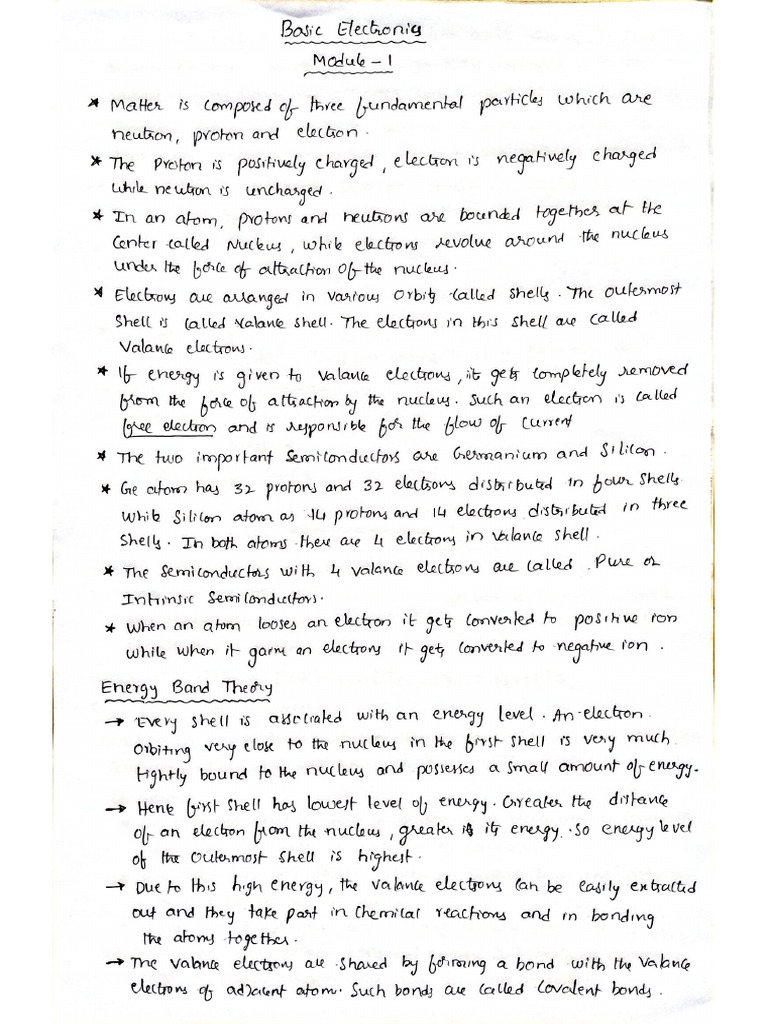 Basic Electronics
Module - 1
* Matter is composed of three fundamental particles which are
neutron, proton and electron.
* The Proton is positively charged, electron is negatively charged
while neutron is uncharged.
* In an atom, protons and neutrons are bounded together at the
Center called Nucleus, while electrons revolve around the nucleus
under the force of attraction of the nucleus.
* Electrons are arranged in various Orbits called shells. The outermost
shell is called Valance shell. The electrons in this shell are called
Valance electrons.
* If energy is given to valance electrons, it gets completely removed
from the force of attraction by the nucleus. Such an electron is called
free electron and is responsible for the flow of current
* The two important Semiconductors are Germanium and Silicon.
* Ge atom has 32 protons and 32 electrons distributed in four shells.
While Silicon atom as 14 protons and 14 electrons distributed in three
shells. In both atoms there are 4 electrons in valance shell.
* The Semiconductors with 4 valance electrons are called Pure or
Intrinsic Semiconductors.
* When an atom looses an electron it gets converted to positive ion
while when it gains an electrons it gets converted to negative ion.
Energy Band Theory
→ Every shell is associated with an energy level. An electron
Orbiting very close to the nucleus in the first shell is very much
tightly bound to the nucleus and possesses a small amount of energy.
→ Hence first shell has lowest level of energy. Greater the distance
of an electron from the nucleus, greater is its energy. So energy level
of the outermost shell is highest.
→ Due to this high energy, the valance electrons can be easily extracted
out and they take part in chemical reactions and in bonding
the atoms together.
→ The valance electrons are shared by forming a bond with the valance
electrons of adjacent atom. Such bonds are called Covalent bonds.